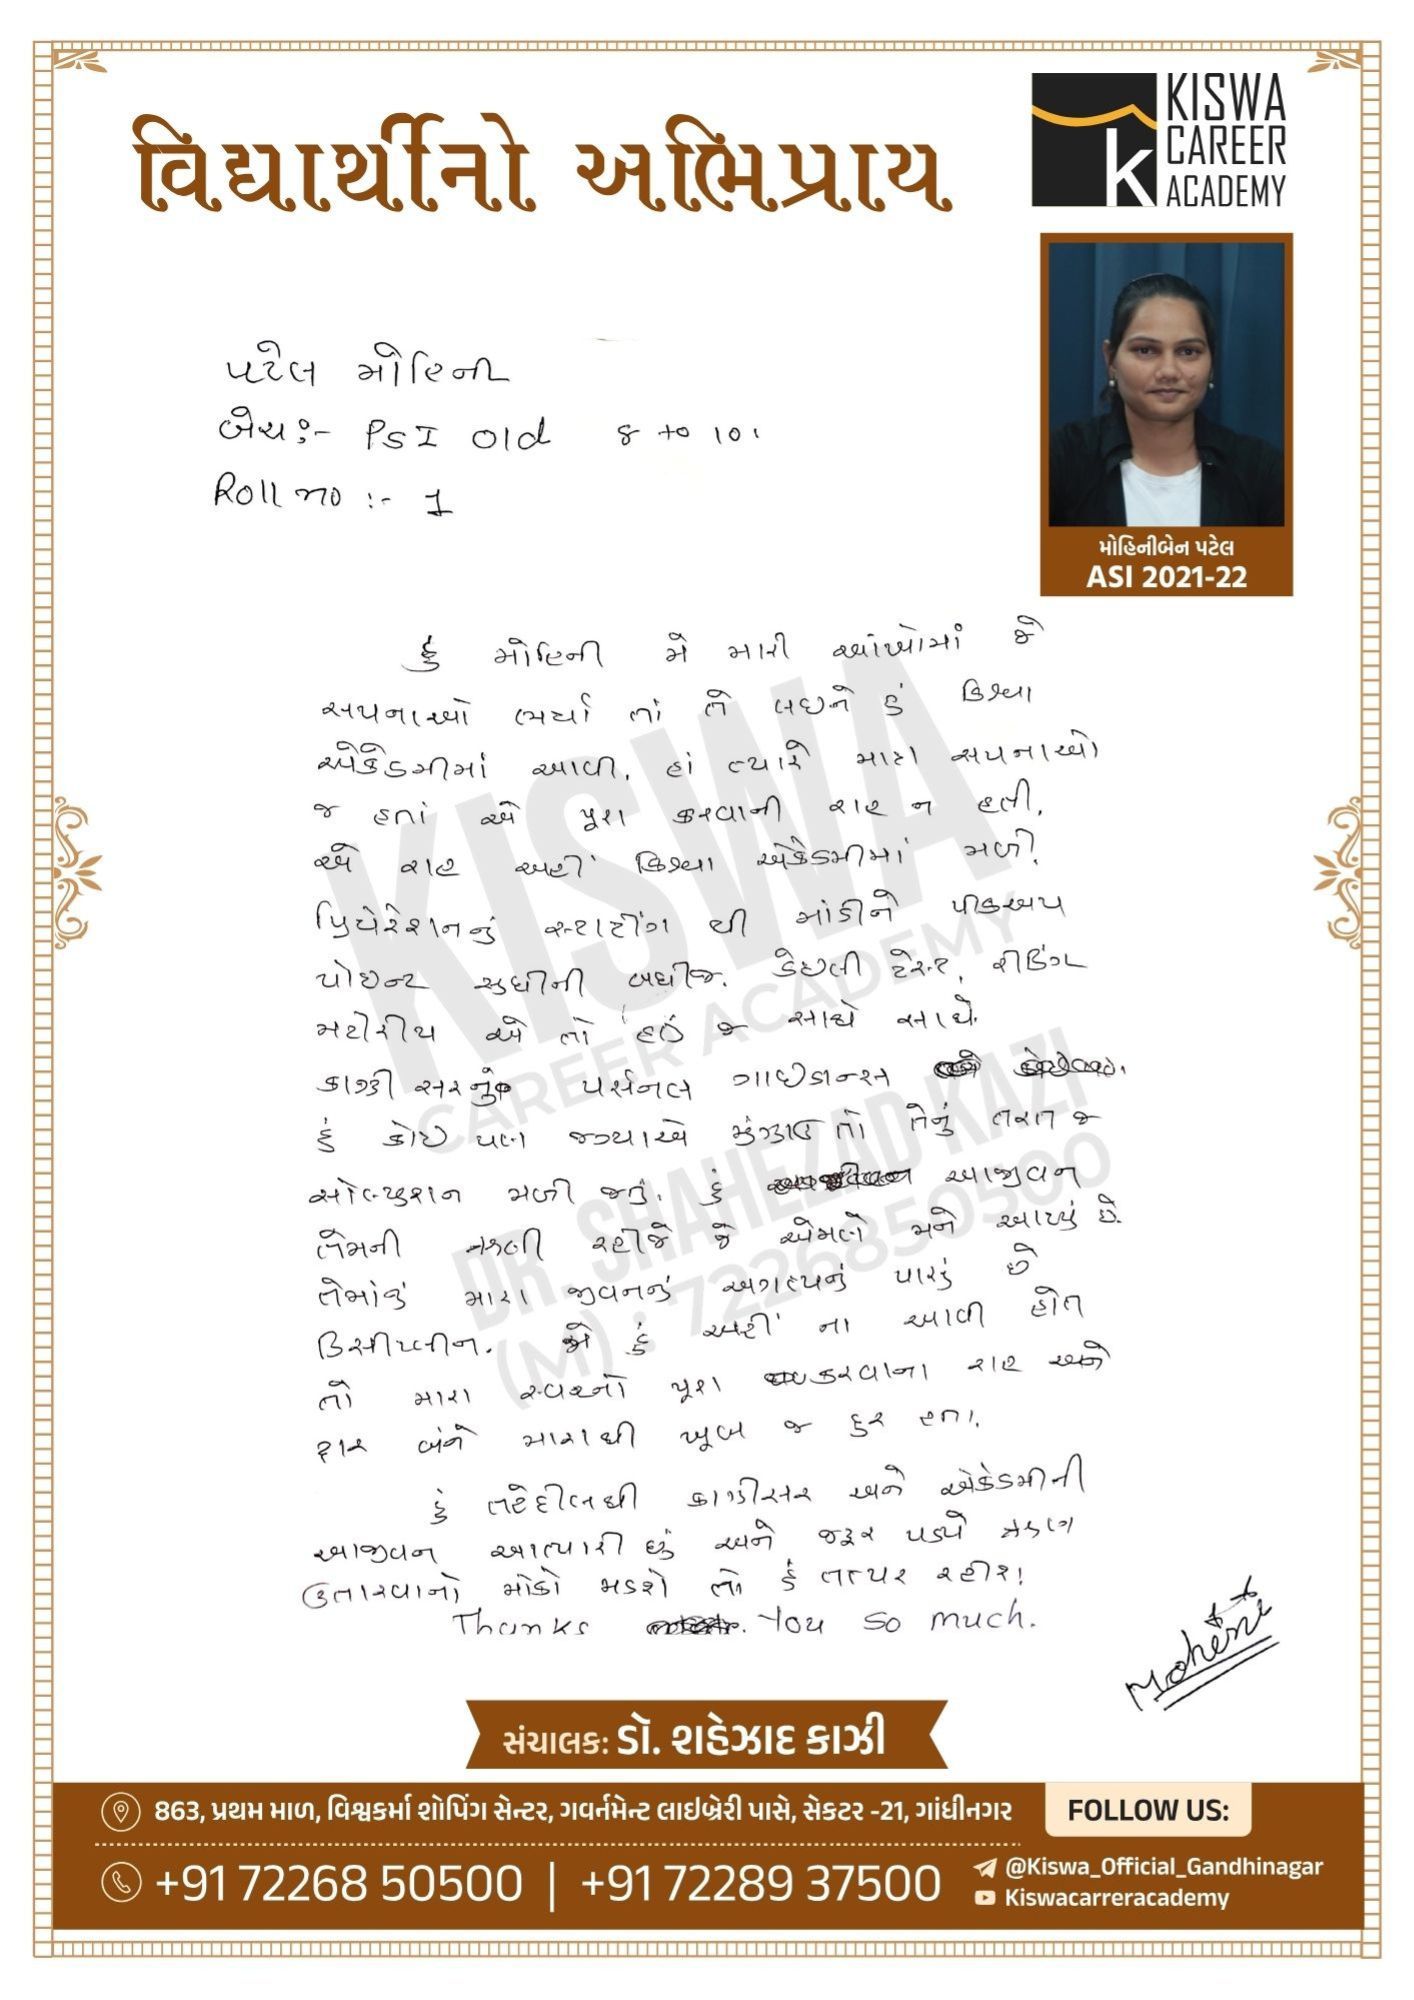 વિદ્યાર્થીનો અભિપ્રાય
KISWA
CAREER
ACADEMY
પટેલ મોહિની
બેચ:- PSI old 8 to 10.
Roll no :- 1
મોહિનીબેન પટેલ
ASI 2021-22
હું મોહિની મે મારી આંખોમાં જે
સપનાઓ ભર્યા તાં તે લઇને હું કિસ્વા
એકેડમીમાં આવી. હાં ત્યારે માત્ર સપનાઓ
જ હતાં એ પૂરા કરવાની રાહ ન હતી.
એ રાહ અહીં કિસ્વા એકેડમીમાં મળી.
પ્રિપેરેશનનું સ્ટાર્ટીંગ થી માંડીને પીકઅપ
પોઇન્ટ સુધીની બધીજ. ડેઇલી ટેસ્ટ, રીડિંગ
મટીરીય એ તો હતું જ સાથે સાથે.
કાઝી સરનું પર્સનલ ગાઇડાન્સ
હું કોઇ પણ જગ્યાએ મુંઝાઉ તો તેનું તરત જ
સોલ્યુશન મળી જતું. હું આજીવન
તેમની રહીજે જે એમણે મને આપ્યું છે.
તેમાંનું મારા જીવનનું અગત્યનું પાસું છે
ડિસીપ્લીન. જો હું અહીં ના આવી હોત
તો મારા સ્વપ્નો પૂરા કરવાના રાહ અને
દ્વાર બંને મારાથી ખૂબ જ દુર હતા.
હું તહેદીલથી કાઝીસર અને એકેડમીની
આજીવન આભારી છું અને જરૂર પડ્યે ઋણ
ઉતારવાનો મોકો મળશે તો હું તત્પર રહીશ!
Thanks You so much.
Mohini
KISWA
CAREER ACADEMY
DR. SHAHEZAD KAZI
(M) : 7226850500
સંચાલક: ડૉ. શહેઝાદ કાઝી
863, પ્રથમ માળ, વિશ્વકર્મા શોપિંગ સેન્ટર, ગવર્નમેન્ટ લાઇબ્રેરી પાસે, સેકટર -21, ગાંધીનગર
FOLLOW US:
+91 72268 50500 | +91 72289 37500
@Kiswa_Official_Gandhinagar
Kiswacarreracademy